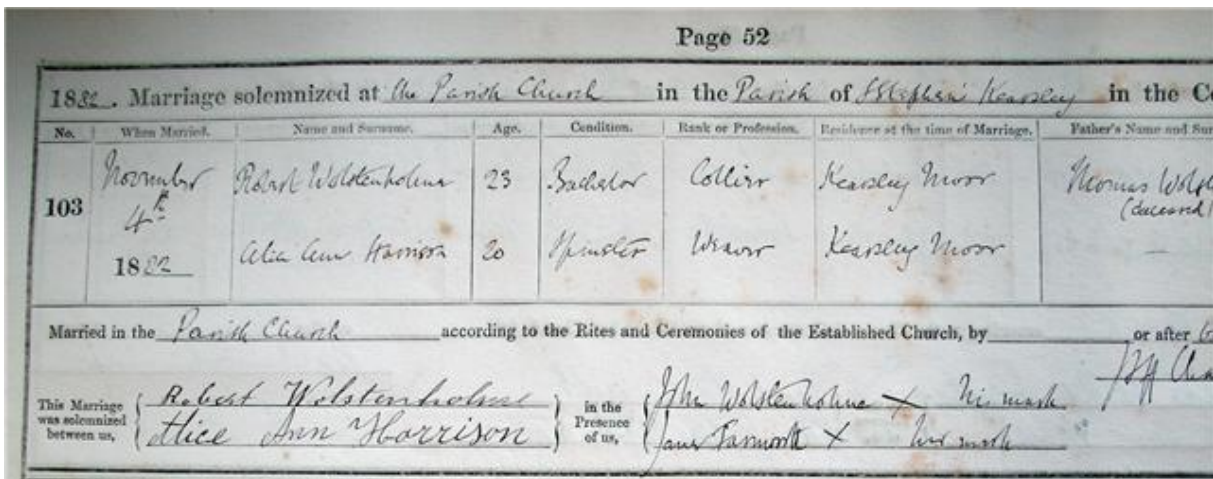 Page 52
1882. Marriage solemnized at the Parish Church in the Parish of St Stephen Kearsley in the Co
No. When Married. Name and Surname. Age. Condition. Rank or Profession. Residence at the time of Marriage. Father's Name and Sur
November Robert Wolstenholme 23 Bachelor Collier Kearsley Moor Thomas Wolst
103 4th (deceased)
1882 Alice Ann Harrison 20 Spinster Weaver Kearsley Moor —
Married in the Parish Church according to the Rites and Ceremonies of the Established Church, by or after
This Marriage was solemnized between us, Robert Wolstenholme in the Presence of us, John Wolstenholme X his mark
Alice Ann Harrison Jane Farnworth X her mark